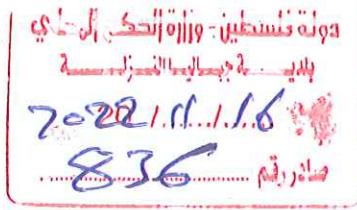 دولة فلسطين - وزارة الحكم المحلي
بلدية جباليا النزلة
2022/11/16
صادر رقم 836